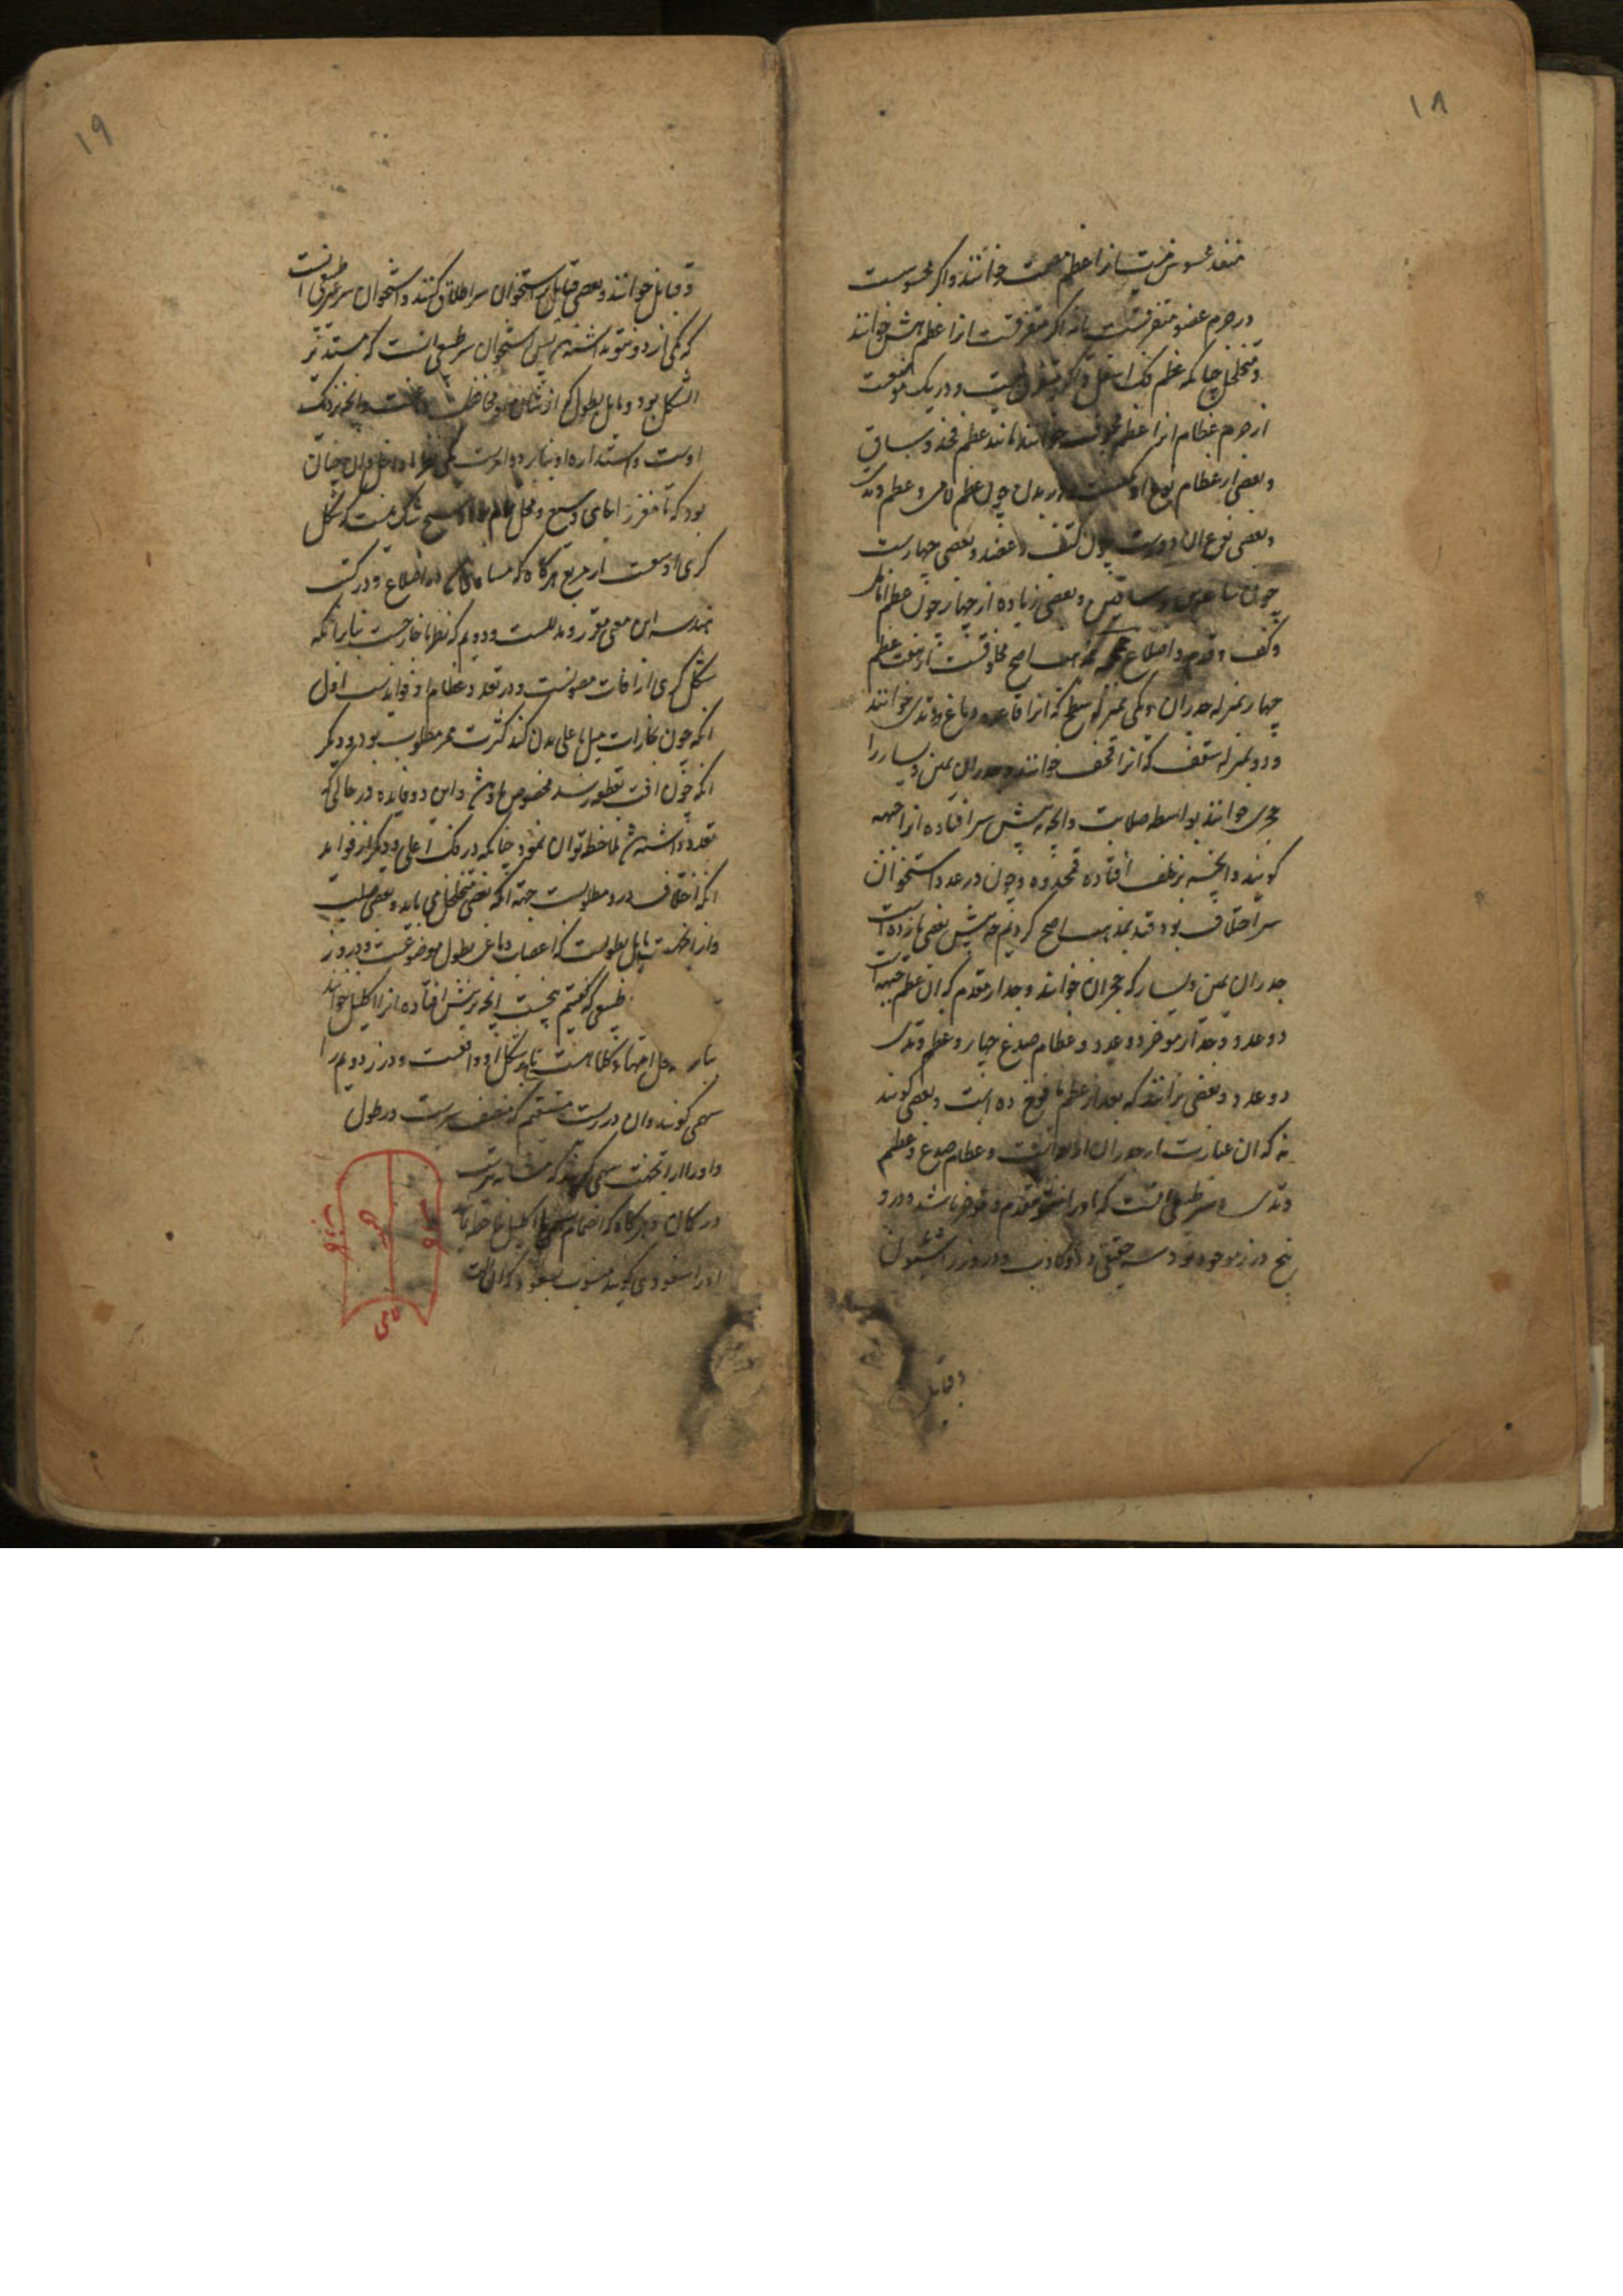 ۱۸
منفذ محسوس نیست انرا عظم مصمت خوانند و اگر محسوسست
در جرم عضو متفرقست یا نه اگر متفرقست انرا عظم هش خوانند
و متخلخل چنانکه عظم فک اسفل و اگر متفرق نیست و در یک موضعست
از جرم عظام انرا عظم مجوف خوانند مانند عظم فخذ و ساق
و بعضی از عظام نوع او یکیست در بدن چون عظم لامی و عظم وتدی
و بعضی نوع ان دوست چون کتف و عضد و بعضی چهارست
چون ساعدین و ساقین و بعضی زیاده از چهار چون عظم انامل
و کف و قدم و اضلاع اصح مخلوقست از هفت عظم
چهار بمنزله جدران و یکی بمنزله سطح که انرا قاعده دماغ و وتدی خوانند
و دو بمنزله سقف که انرا قحف خوانند و جدران یمین و یسار را
حجری خوانند بواسطه صلابت و انچه پیش سر افتاده انرا جبهه
گویند و انچه بر خلف افتاده قمحدوه و چون در عدد استخوان
سر اختلاف بود قید بمذهب اصح کردیم چه پیش بعضی یازده است
جدران یمین و یسار که حجران خوانند و جدار مقدم که ان عظم جبهه است
دو عدد و جدار موخر دو عدد و عظام صدغ چهار و عظم وتدی
دو عدد و بعضی برانند که بعد از عظم یافوخ ده است و بعضی گویند
نه که ان عبارت از جدران اربعه است و عظام صدغ و عظم
وتدی و سر طبیعی انست که او را نتو مقدم و موخر باشد و در و
پنج درز موجود بود سه حقیقی و دو کاذب و درز را شئون
و قبایل
۱۹
و قبایل خوانند و بعضی قبایل بر استخوان سر اطلاق کنند و استخوان سر غیر طبیعی انست
که یکی از دو نتو نداشته باشد پس استخوان سر طبیعی انست که مستدیر
الشکل بود و مایل بطول که از شان او محافظت دماغست و انچه نزدیک
اوست و استداره او بنابر دو امرست یکی نظر با داخل و ان چنان
بود که تا مغز را جای وسیع و محل تمام بود و هیچ شک نیست که شکل
کری اوسعست از مربع هر گاه که مساوی باشد در اضلاع و در کتب
هندسه این معنی مقرر و مدللست و دویم که نظر با خارجست بنابر انکه
شکل کری از افات مصونست و در تعدد عظام او فوایدست اول
انکه چون بخارات میل باعلی بدن کند کثرت ممر مطلوب بود و دیگر
انکه چون افت بعظمی رسد مخصوص باو باشد و این دو فایده در حالتی که
تعدد داشته باشد ملاحظه توان نمود چنانکه در فک اعلی و دیگر از فواید
انکه اختلاف درو مطلوبست جهة انکه بعضی متخلخل می باید و بعضی صلب
و از انجهت مایل بطولست که اعصاب دماغی بطول موضوعست و دروز
طبیعی که گفتیم پنجست انچه بر پیش افتاده انرا اکلیلی خوانند
بنابر محل انتهاء کلاهست یا بر شکل او واقعست و درز دویم را
سهمی گویند و ان درزیست مستقیم که منصف سرست در طول
و او را از انجهت سهمی گویند که مشابه تیرست
در کمان و هر گاه که انضمام سهمی با اکلیلی ملاحظه نمایند
او را سفودی گویند منسوب بسفود که ان التی است
سهمی
لامی